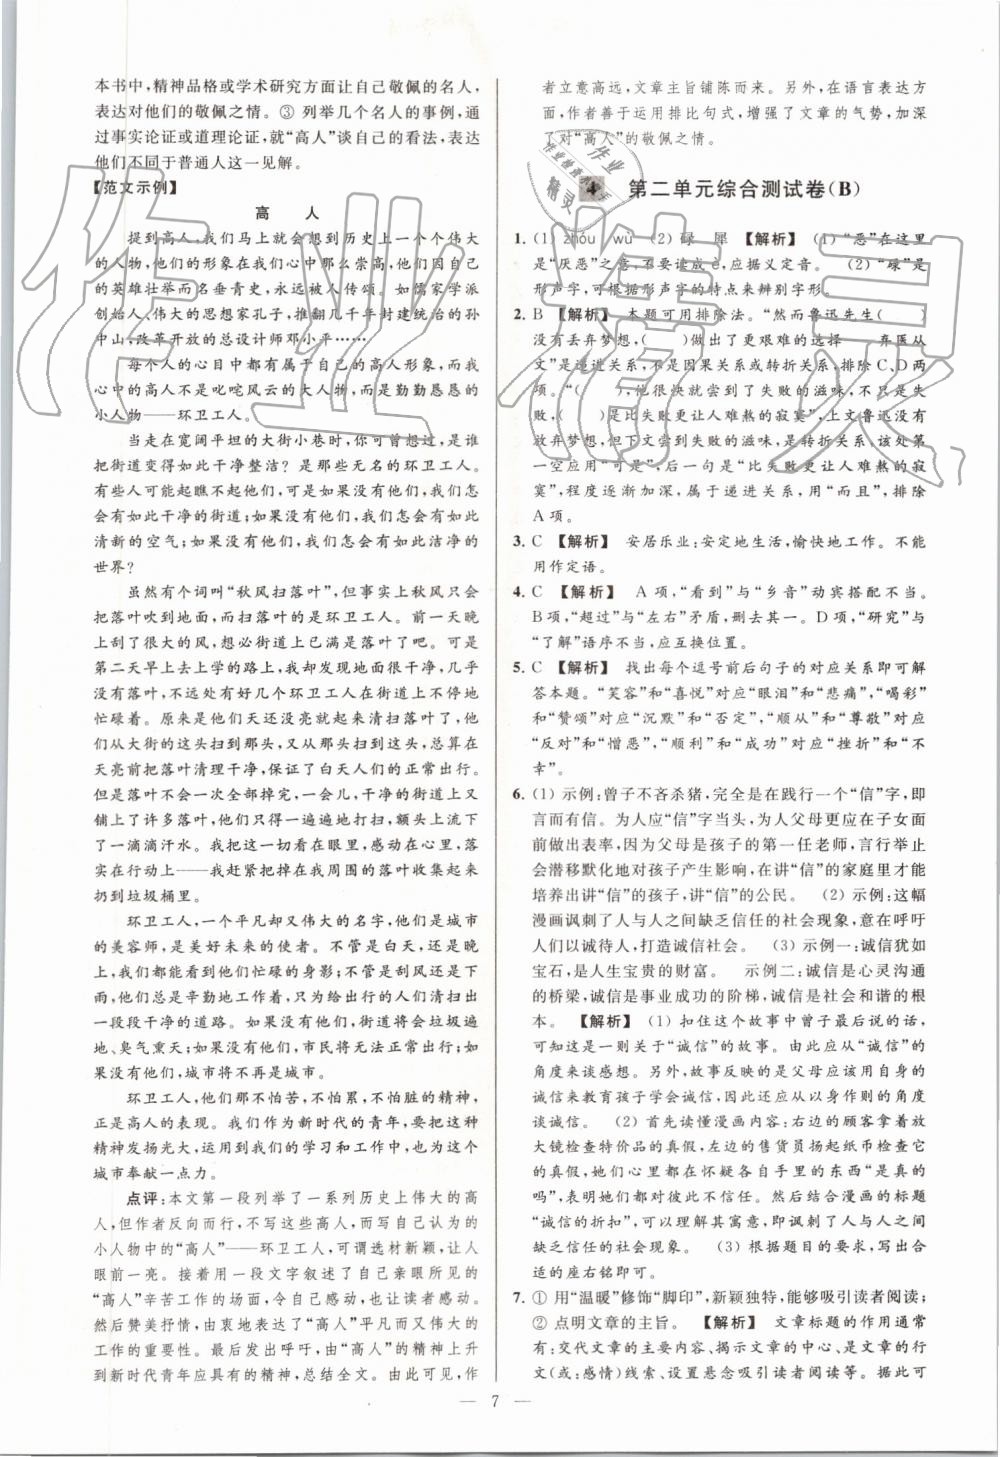 本书中,精神品格或学术研究方面让自己敬佩的名人,
表达对他们的敬佩之情。③ 列举几个名人的事例,通
过事实论证或道理论证,就“高人”谈自己的看法,表达
他们不同于普通人这一见解。
【范文示例】
高　人
提到高人,我们马上就会想到历史上一个个伟大
的人物,他们的形象在我们心中那么崇高,他们
的英雄壮举而名垂青史,永远被人传颂。如儒家学派
创始人、伟大的思想家孔子,推翻几千年封建统治的孙
中山,改革开放的总设计师邓小平……
每个人的心目中都有属于自己的高人形象,而我
心中的高人不是叱咤风云的大人物,而是勤勤恳恳的
小人物——环卫工人。
当走在宽阔平坦的大街小巷时,你可曾想过,是谁
把街道变得如此干净整洁?是那些无名的环卫工人。
有些人可能起瞧不起他们,可是如果没有他们,我们怎
会有如此干净的街道;如果没有他们,我们怎会有如此
清新的空气;如果没有他们,我们怎会有如此洁净的
世界?
虽然有个词叫“秋风扫落叶”,但事实上秋风只会
把落叶吹到地面,而扫落叶的是环卫工人。前一天晚
上刮了很大的风,想必街道上已满是落叶了吧。可是
第二天早上去上学的路上,我却发现地面很干净,几乎
没有落叶,不远处有好几个环卫工人在街道上不停地
忙碌着。原来是他们天还没亮就起来清扫落叶了,他
们从大街的这头扫到那头,又从那头扫到这头,总算在
天亮前把落叶清理干净,保证了白天人们的正常出行。
但是落叶不会一次全部掉完,一会儿,干净的街道上又
铺上了许多落叶,他们只得一遍遍地打扫,额头上流下
了一滴滴汗水。我把这一切看在眼里,感动在心里,落
在行动上——我赶紧把掉在我周围的落叶收集起来
扔到垃圾桶里。
环卫工人,一个平凡却又伟大的名字,他们是城市
的美容师,是美好未来的使者。不管是白天,还是晚
上,我们都能看到他们忙碌的身影;不管是刮风还是下
雨,他们总是辛勤地工作着,只为给出行的人们清扫出
一段段干净的道路。如果没有他们,街道将会垃圾遍
地、臭气熏天;如果没有他们,市民将无法正常出行;如
果没有他们,城市将不再是城市。
环卫工人,他们那不怕苦,不怕累,不怕脏的精神,
正是高人的表现。我们作为新时代的青年,要把这种
精神发扬光大,运用到我们的学习和工作中,也为这个
城市奉献一点力。
点评:本文第一段列举了一系列历史上伟大的高
人,但作者反向而行,不写这些高人,而写自己认为的
小人物中的“高人”——环卫工人,可谓选材新颖,让人
眼前一亮。接着用一段文字叙述了自己亲眼所见的
“高人”辛苦工作的场面,令自己感动,也让读者感动。
然后赞美抒情,由衷地表达“高人”平凡而又伟大的工
作的重要性。最后发出呼吁,由“高人”的精神上升
到新时代青年应具有的精神,总结全文。由此可见,作
者立意高远,文章主旨铺陈而来。另外,在语言表达方
面,作者善于运用排比句式,增强了文章的气势,加深
了对“高人”的敬佩之情。
4　第二单元综合测试卷(B)
1. (1) zhóu　wù　(2) 碌　犀　【解析】　(1) “恶”在这里
是“厌恶”之意,不要读成è,应据义定音。　(2) “碌”是
形声字,可根据形声字的特点来辨别字形。
2. B　【解析】　本题可用排除法。“然而鲁迅先生(　　)
没有丢弃梦想,(　　)做出了更艰难的选择——弃医从
文”是递进关系,不是因果关系或转折关系,排除C、D两
项。“(　　),他很快就尝到了失败的滋味,不只是失
败,(　　)是比失败更让人难熬的寂寞”,上文鲁迅没有
放弃梦想,但下文尝到失败的滋味,是转折关系,该处第
一空应用“可是”,后一句是“比失败更让人难熬的寂
寞”,程度逐渐加深,属于递进关系,用“而且”,排除
A项。
3. C　【解析】　安居乐业:安定地生活,愉快地工作。不能
用作定语。
4. C　【解析】　A项,“看到”与“乡音”动宾搭配不当。
B项,“超过”与“左右”矛盾,删去其一。D项,“研究”与
“了解”语序不当,应互换位置。
5. C　【解析】　找出每个逗号前后句子的对应关系即可解
答本题。“笑容”和“喜悦”对应“眼泪”和“悲痛”,“喝彩”
和“赞颂”对应“沉默”和“否定”,“顺从”和“尊敬”对应
“反对”和“憎恶”,“顺利”和“成功”对应“挫折”和“不
幸”。
6. (1) 示例:曾子不吝杀猪,完全是在践行一个“信”字,即
言而有信。为人应“信”字当头,为人父母更应在子女面
前做出表率,因为父母是孩子的第一任老师,言行举止
会潜移默化地对孩子产生影响,在讲“信”的家庭里才能
培养出讲“信”的孩子,讲“信”的公民。　(2) 示例:这幅
漫画讽刺了人与人之间缺乏信任的社会现象,意在呼吁
人们以诚待人,打造诚信社会。　(3) 示例一:诚信犹如
宝石,是人生宝贵的财富。　示例二:诚信是心灵沟通
的桥梁,诚信是事业成功的阶梯,诚信是社会和谐的根
本。　【解析】　(1) 扣住这个故事中曾子最后说的话,
可知这是一则关于“诚信”的故事。由此应从“诚信”的
角度来谈感想。另外,故事反映的是父母应该用自身的
诚信来教育孩子学会诚信,因此还应从以身作则的角度
谈诚信。　(2) 首先读懂漫画内容:右边的顾客拿着放
大镜检查特价品的真假,左边的售货员扬起纸币检查它
的真假,她们是都在怀疑各自手里的东西“是真的
吗”,表明彼此之间缺乏诚信。然后结合漫画的标题
“诚信的折扣”,可以理解其寓意,即讽刺了人与人之间
缺乏信任的社会现象。　(3) 根据题目的要求,写出合
适的座右铭即可。
7. ① 用“温暖”修饰“脚印”,新颖独特,能够吸引读者阅读;
② 点明文章的主旨。　【解析】　文章标题的作用通常
有:交代文章的主要内容、揭示文章的中心、是文章的行
文(或:感情)线索、设置悬念吸引读者阅读等。据此可
— 7 —